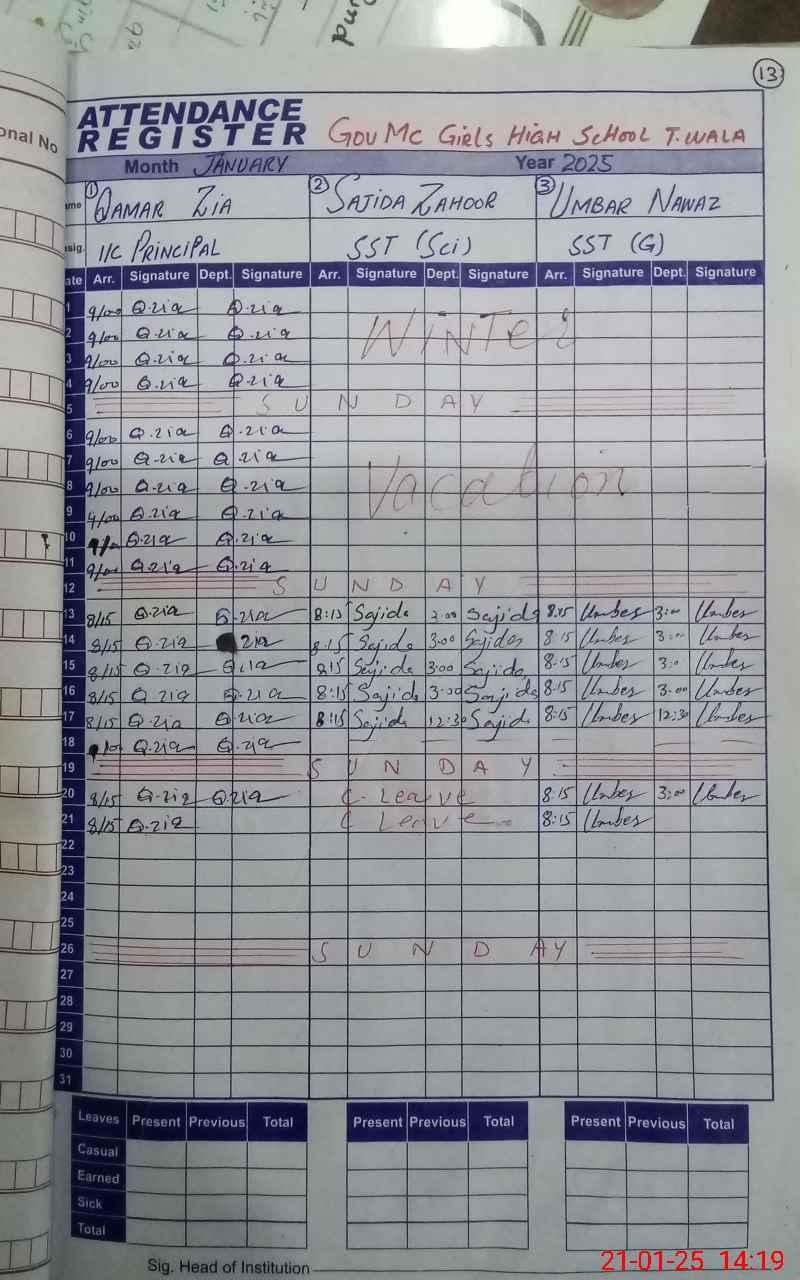 13
onal No
ATTENDANCE REGISTER GOV MC GIRLS HIGH SCHOOL T.WALA
Month JANUARY Year 2025
ame 1 QAMAR ZIA 2 SAJIDA ZAHOOR 3 UMBAR NAWAZ
sig. I/C PRINCIPAL SST (Sci) SST (G)
ate Arr. Signature Dept. Signature Arr. Signature Dept. Signature Arr. Signature Dept. Signature
1 9/00 Q.zia Q.zia
2 9/00 Q.zia Q.zia WiNTer
3 9/00 Q.zia Q.zia
4 9/00 Q.zia Q.zia
5 SUNDAY
6 9/00 Q.zia Q.zia
7 9/00 Q.zia Q.zia
8 9/00 Q.zia Q.zia Vacation
9 9/00 Q.zia Q.zia
10 Q.zia Q.zia
11 9/00 Q.zia Q.zia
12 SUNDAY
13 8/15 Q.zia Q.zia 8:15 Sajida 3:00 Sajida 8:15 Umber 3:00 Umber
14 8/15 Q.zia zia 8:15 Sajida 3:00 Sajida 8:15 Umber 3:00 Umber
15 8/15 Q.zia Q.zia 8:15 Sajida 3:00 Sajida 8:15 Umber 3:0 Umber
16 8/15 Q.zia Q.zia 8:15 Sajida 3:00 Sajida 8:15 Umber 3:00 Umber
17 8/15 Q.zia Q.zia 8:15 Sajida 12:30 Sajida 8:15 Umber 12:30 Umber
18 Q.zia Q.zia
19 SUNDAY
20 8/15 Q.zia Q.zia C. Leave 8:15 Umber 3:00 Umber
21 8/15 Q.zia C Leave 8:15 Umber
22
23
24
25
26 SUNDAY
27
28
29
30
31
Leaves Present Previous Total Present Previous Total Present Previous Total
Casual
Earned
Sick
Total
Sig. Head of Institution
21-01-25 14:19